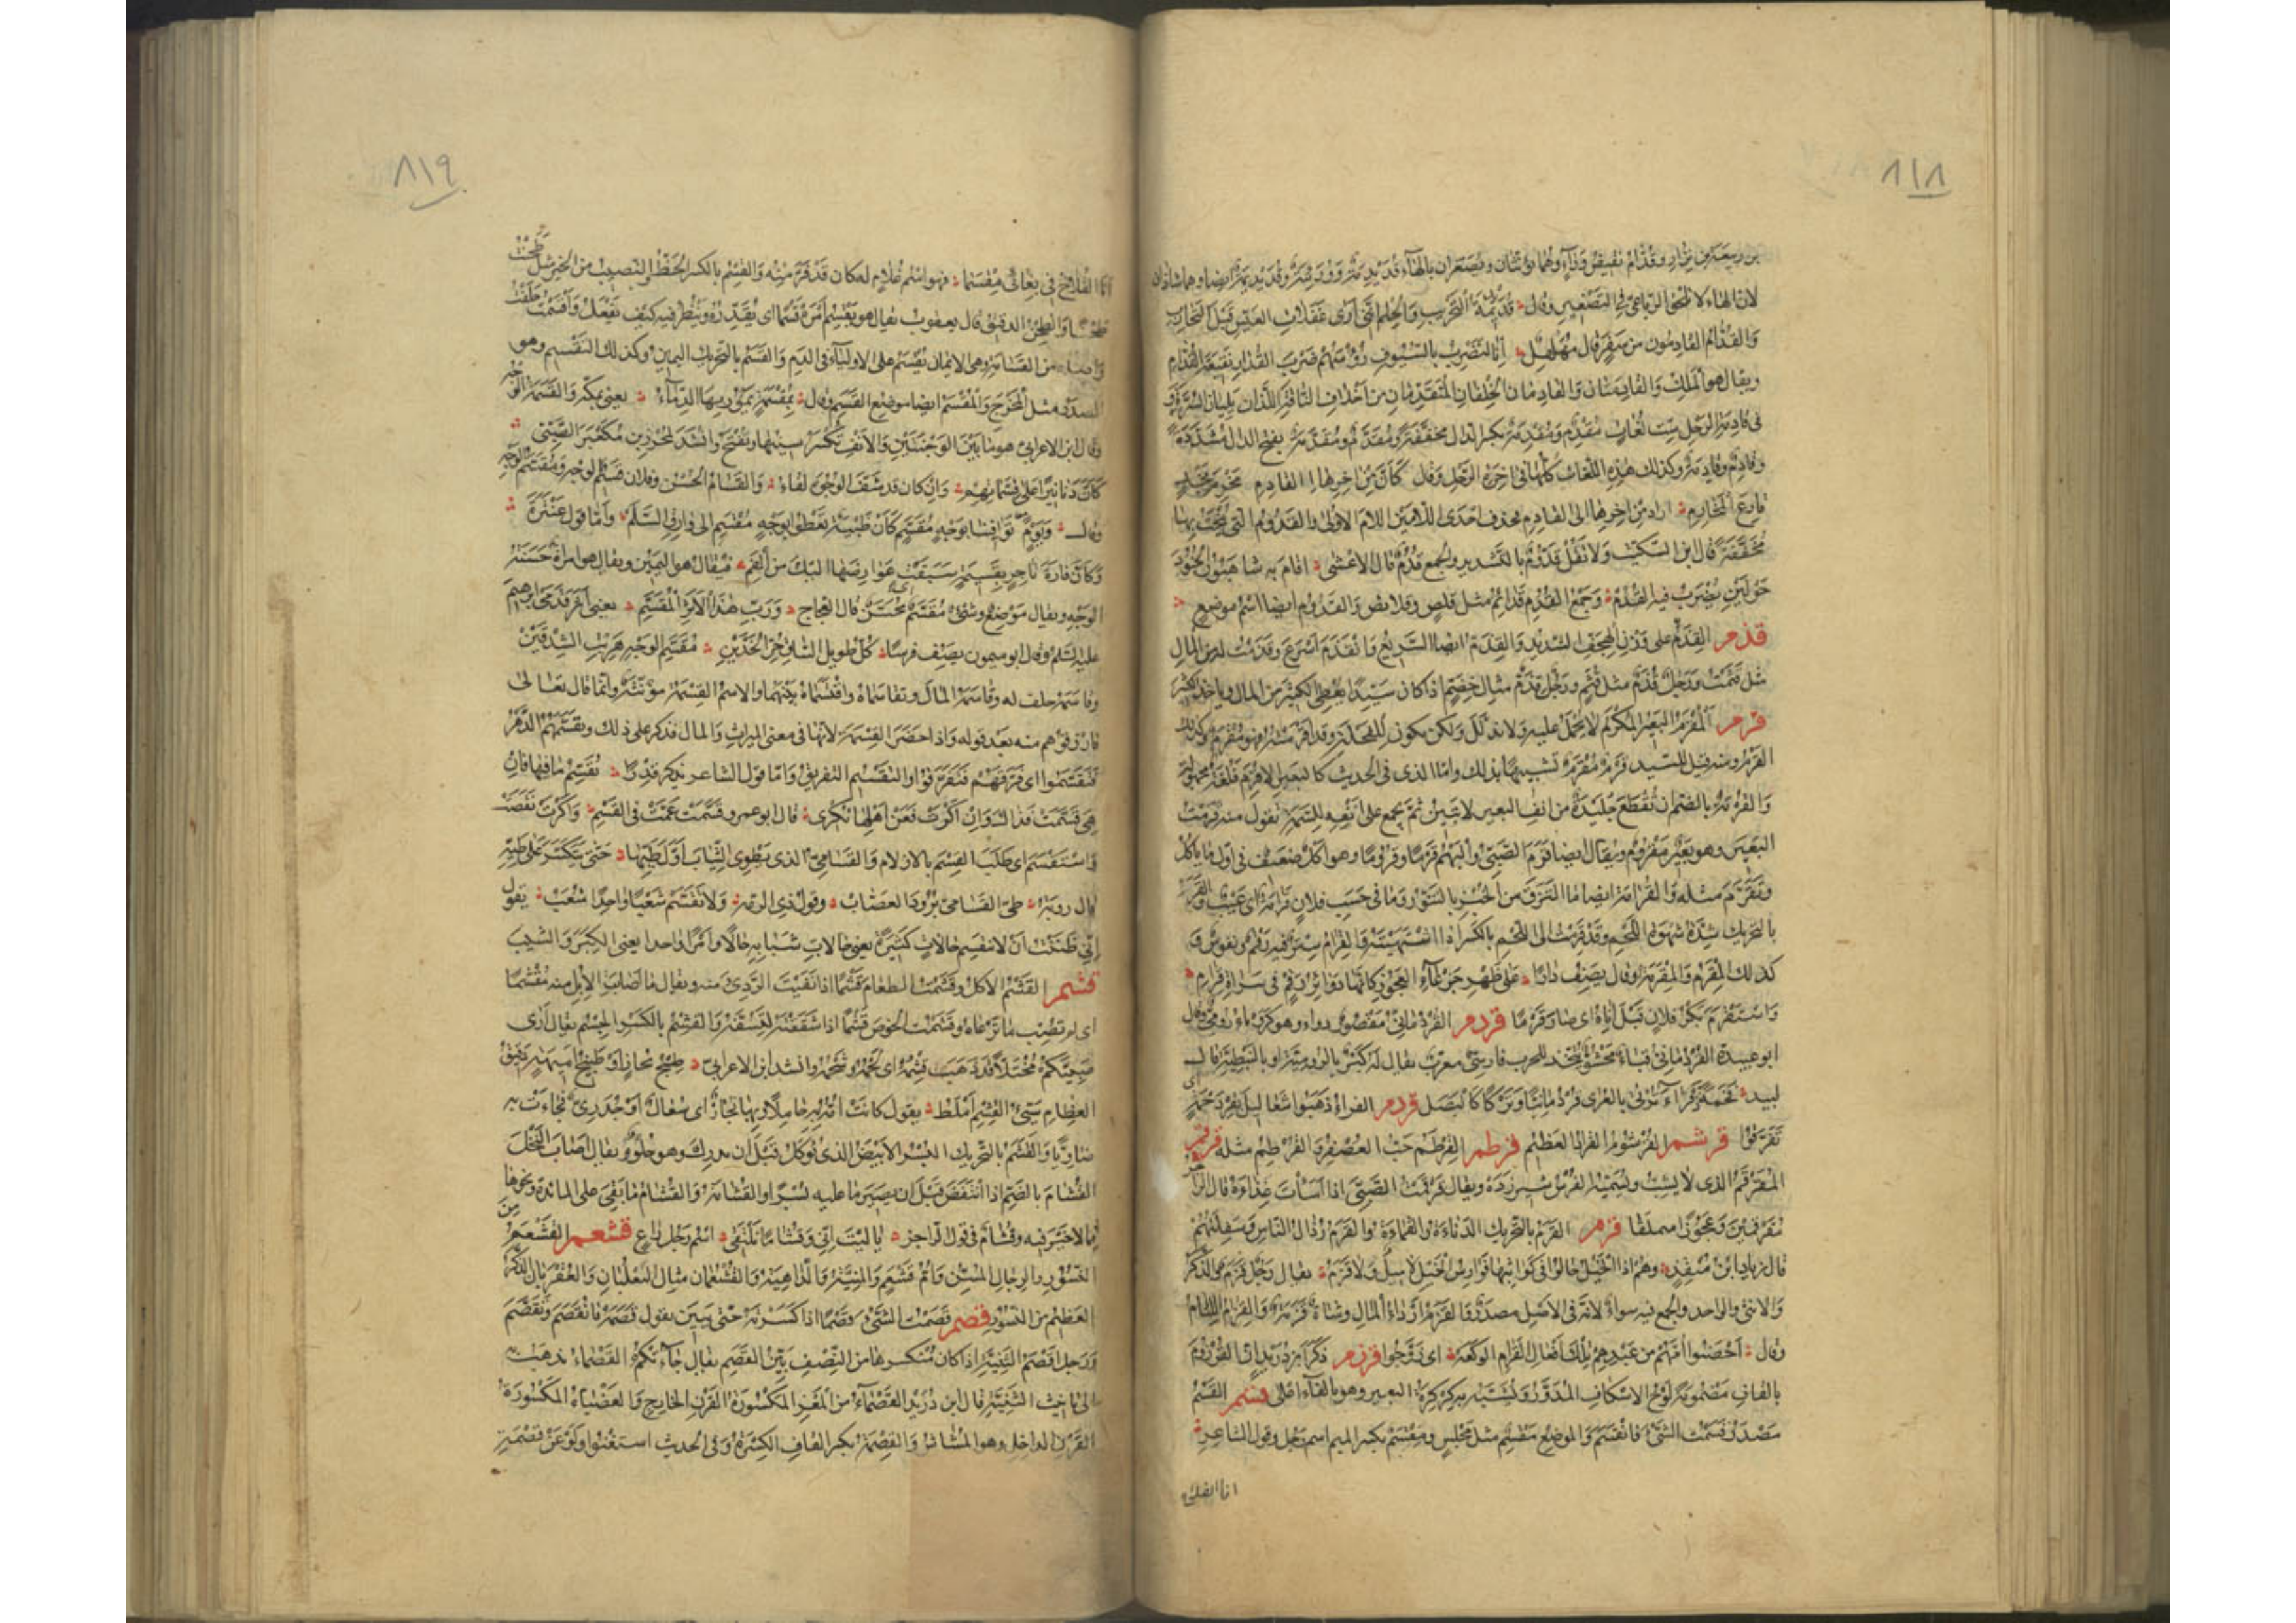 ٨١٨
بن ربيعة بن نزار وقدام نقيض وراء وهما يؤنثان ويصغران بالهاء قديديمة ووريئة وقديديمة ايضا وهما شاذان
لان الهاء لا تلحق الرباعي في التصغير وقال قديديمة التجريب والحلم انني ارى غفلات العيش قبل التجارب
والقدام القادمون من سفر قال مهلهل انا لنضرب بالسيوف رؤسهم ضرب القدار نقيعة القدام
ويقال هو الملك والقادمتان والقادمان الخلفان المتقدمان من اخلاف الناقة اللذان يليان السرة و
في قادمة الرحل ست لغات مقدم ومقدمة بكسر الدال مخففة ومقدم ومقدمة بفتح الدال مشددة
وقادم وقادمة وكذلك هذه اللغات كلها في اخرة الرحل وقال كأن من اخرها القادم مخرم
فارع المخارم اراد من اخرها الى القادم فحذف احدى اللامين اللام الاولى والقدوم التي ينحت بها
مخففة قال ابن السكيت ولا تقل قدوم بالتشديد والجمع قدم قال الاعشى اقام به شاهبور الجنود
حولين تضرب فيه القدم وجمع القدم قدائم مثل قلص وقلائص والقدوم ايضا اسم موضع
قذم القذم على وزن الهجف الشديد والقذم ايضا السريع وانقذم اسرع وقذمت له من المال
مثل قثمت ورجل قذم مثل قثم ورجل قذم مثال خضم اذا كان سيدا يعطي الكثير من المال وياخذ الكثير
قرم المقرم البعير المكرم لا يحمل عليه ولا يذلل ولكن يكون للفحلة وقد اقرمته فهو مقرم وكذلك
القرم ومنه قيل للسيد قرم مقرم تشبيها بذلك واما الذي في الحديث كالبعير الاقرم فلغة مجهولة
والقرمة بالضم ان تقطع جليدة من انف البعير لا تبين ثم تجمع على انفه للسمة تقول منه قرمت
البعير وهو بعير مقروم ويقال ايضا قرم الصبي والبهم قرما وقروما وهو اكل ضعيف في اول ما ياكل
وتقرم مثله والقرامة ايضا ما التزق من الخبز بالتنور وما في حسب فلان قرامة اي عيب والقرم
بالتحريك شدة شهوة اللحم وقد قرمت الى اللحم بالكسر اذا اشتهيته والقرام ستر فيه رقم ونقوش و
كذلك المقرم والمقرمة وقال يصف دارا على ظهر جرعاء العجوز كانها دوائر رقم في سراة قرام
واستقرم بكر فلان قبل اناه اي صار قرما قردم القردماني مقصور دواء وهو كرويا رومي وقال
ابو عبيدة القردماني قباء محشو يتخذ للحرب فارسي معرب يقال له كبر بالرومية او بالنبطية قال
لبيد فخمة ذفراء ترتى بالعرى قردمانيا وتركا كالبصل قردحم الفراء ذهبوا شعاليل بقردحمة اي
تفرقوا قرشم القرشوم القراد العظيم قرطم القرطم حب العصفر والقرطم مثله قرقم
المقرقم الذي لا يشب وتسميه الفرس شيرزده ويقال قرقمت الصبي اذا اسأت غذاءه قال الراجز
مقرقمين وعجوزا سملقا قزم القزم بالتحريك الدناءة والقماءة والقزم رذال الناس وسفلتهم
قال زياد بن منقذ وهم اذا الخيل حالوا في كواثبها فوارس الخيل لا ميل ولا قزم يقال رجل قزم والذكر
والانثى والواحد والجمع فيه سواء لانه في الاصل مصدر والقزم ارداء المال وشاة قزمة والقزام اللئام
وقال احصنوا امهم من عبدهم تلك افعال القزام الوكعة اي تزوجوا قرزم ذكر ابن دريد ان القرزوم
بالقاف مضمومة لوح الاسكاف المدور وتشبه به كركرة البعير وهو بالفاء اعلى قسم القسم
مصدر قسمت الشيء فانقسم والموضع مقسم مثل مجلس ومقسم بكسر الميم اسم رجل وقول الشاعر
انا القلاخ
٨١٩
انا القلاخ في بغائي مقسما فهو اسم غلام له كان قد فر منه والقسم بالكسر الحظ والنصيب من الخير مثل طحنت
طحنا والطحن الدقيق قال يعقوب يقال هو يقسم امره قسما اي يقدره وينظر فيه كيف يفعل واقسمت حلفت
واصله من القسامة وهي الايمان تقسم على الاولياء في الدم والقسم بالتحريك اليمين وكذلك المقسم وهو
المصدر مثل المخرج والمقسم ايضا موضع القسم وقال بمقسمة تمور بها الدماء يعني بمكة والقسمة الوجه
وقال ابن الاعرابي هو ما بين الوجنتين والانف تكسر سينها وتفتح وانشد لمحرز بن مكعبر الضبي
كأن دنانيرا على قسماتهم وان كان قد شف الوجوه لقاء والقسام الحسن وفلان قسيم الوجه ومقسم الوجه
وقال ويوم توافينا بوجه مقسم كأن ظبية تعطو الى وارق السلم واما قول عنترة
وكأن فارة تاجر بقسيمة سبقت عوارضها اليك من الفم فيقال هو اليمين ويقال هو امراة حسنة
الوجه ويقال موضع وشيء مقسم اي محسن قال العجاج ورب هذا الاثر المقسم يعني اثر قدمي ابراهيم
عليه السلم وقال ابو ميمون يصف فرسا كل طويل الساق حر الخدين مقسم الوجه هريت الشدقين
وقاسمه حلف له وقاسمه المال وتقاسماه واقتسماه بينهما والاسم القسمة مؤنثة وانما قال تعالى
فارزقوهم منه بعد قوله واذا حضر القسمة لانها في معنى الميراث والمال فذكر على ذلك وتقسمهم الدهر
فتقسموا اي فرقهم فتفرقوا والتقسيم التفريق واما قول الشاعر يذكر قدرا تقسم ما فيها فان
هي قسمت فذاك وان اكرت فعن اهلها تكري قال ابو عمرو قسمت عمت في القسم واكرت نقصت
واستقسم اي طلب القسم بالازلام والقسامي الذي يطوي الثياب اول طيها حتى تتكسر على طيه
قال رؤبة طي القسامي برود العصاب وقول ذي الرمة ولا تقسم شعبا واحدا شعب يقول
اني ظننت ان لا تنقسم حالات كثيرة يعني حالات شبابه حالا وامرا واحدا يعني الكبر والشيب
قشم القشم الاكل وقشمت الطعام قشما اذا نفيت الردي منه ويقال ما اصابت الابل منه مقشما
اي لم تصب ما ترعاه وقشمت الخوص قشما اذا شققته لتسفه والقشم بالكسر الجسم يقال ارى
صبيكم مختلا قد ذهب قشمه اي لحمه وشحمه وانشد ابن الاعرابي طبيخ نحاز او طبيخ اميهة دقيق
العظام سيئ القشم املط يقول كانت امه به حاملا وبها نحاز اي سعال او جدري فجاءت به
ضاويا والقشم بالتحريك البسر الابيض الذي يؤكل قبل ان يدرك وهو حلو ويقال اصاب النخل
القشام بالضم اذا انتفض قبل ان يصير ما عليه بسرا والقشامة والقشام ما بقي على المائدة ونحوها
مما لا خير فيه وقشام في قول الراجز يا ليت اني وقشاما نلتقي اسم رجل راع قشعم القشعم من
النسور والرجال المسن وام قشعم المنية والداهية والقشعمان مثال الثعلبان والعقربان الذكر
العظيم من النسور قصم قصمت الشيء قصما اذا كسرته حتى يبين تقول قصمه فانقصم وتقصم
ورجل اقصم الثنية اذا كان منكسرها من النصف بين القصم يقال جاءتكم القصماء تذهب به
الى تانيث الثنية قال ابن دريد القصماء من المعز المكسورة القرن الخارج والعضباء المكسورة
القرن الداخل وهو المشاش والقصمة بكسر القاف الكسرة وفي الحديث استغنوا ولو عن قصمة